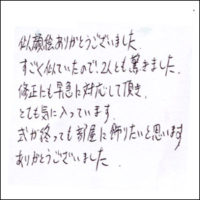 似顔絵ありがとうございました。
すごく似ていたので、2人とも驚きました。
修正にも早急に対応して頂き、
とても気に入っています。
式が終っても部屋に飾りたいと思います
ありがとうございました。